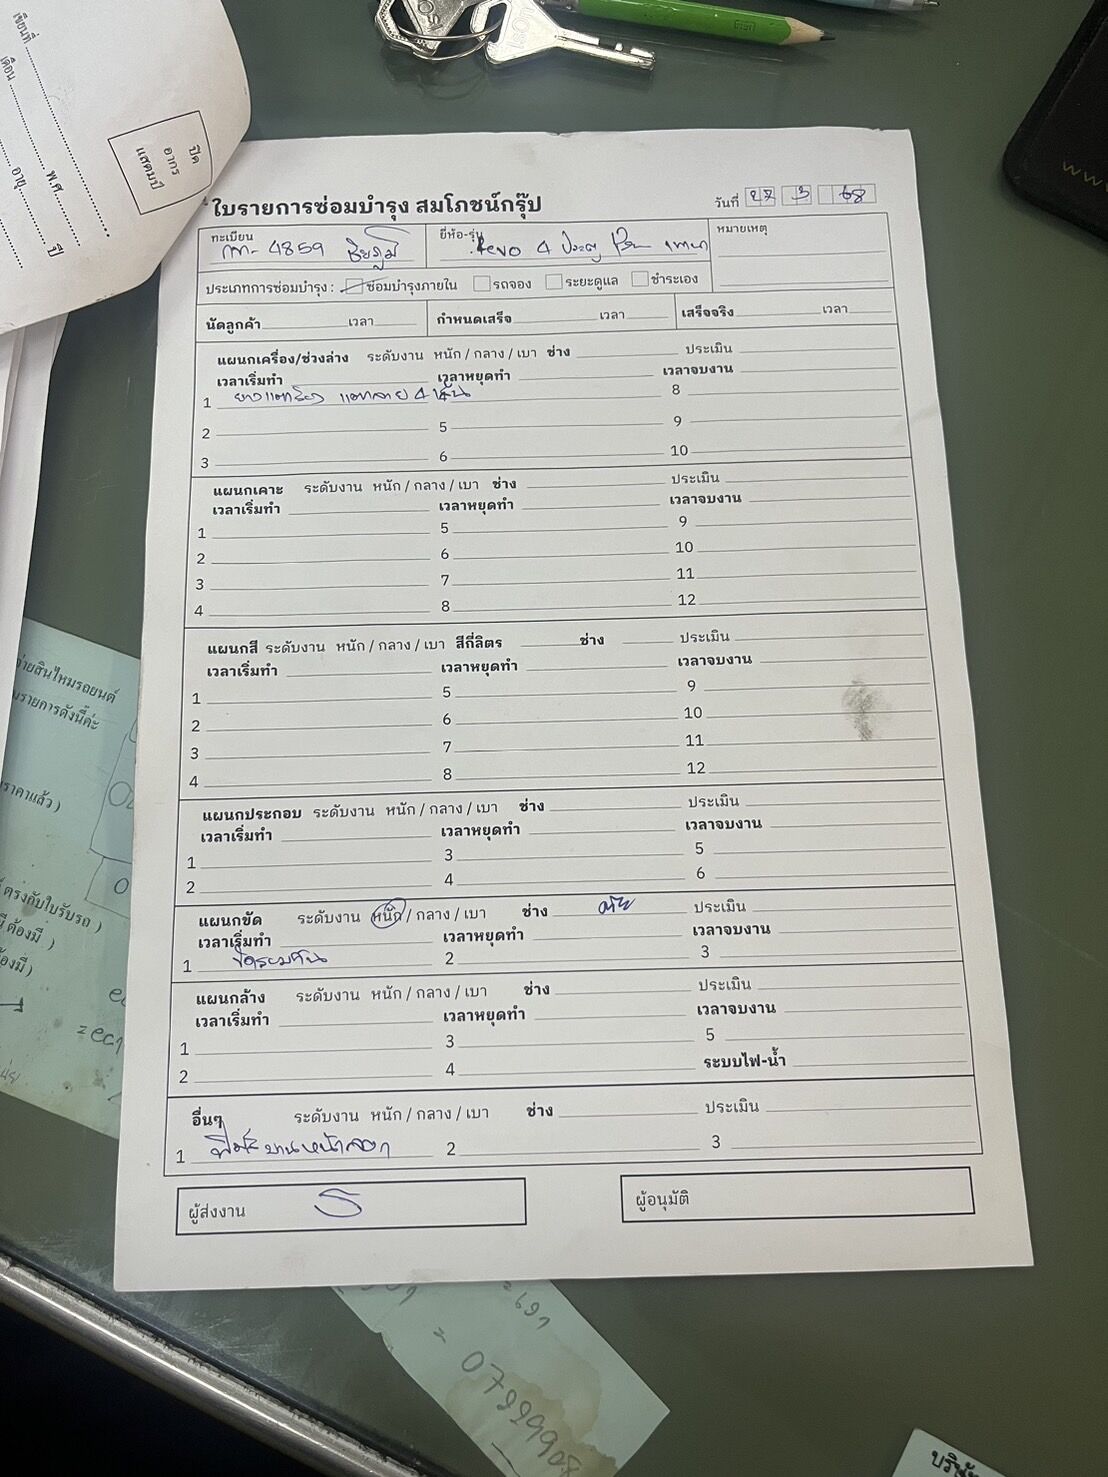 เขียนที่
เดือน
พ.ศ.
อายุ
ปี
ปิด
อากร
แสตมป์
ใบรายการซ่อมบำรุง สมโภชน์กรุ๊ป
วันที่ 3 68
ทะเบียน 4859 ชัยภูมิ
ยี่ห้อ-รุ่น Revo 4 ประตู
หมายเหตุ
ประเภทการซ่อมบำรุง : ซ่อมบำรุงภายใน รถจอง ระยะดูแล ชำระเอง
นัดลูกค้า เวลา กำหนดเสร็จ เวลา เสร็จจริง เวลา
แผนกเครื่อง/ช่วงล่าง ระดับงาน หนัก / กลาง / เบา ช่าง ประเมิน
เวลาเริ่มทำ เวลาหยุดทำ เวลาจบงาน
1 แตกลาย 4 เส้น 8
2 5 9
3 6 10
แผนกเคาะ ระดับงาน หนัก / กลาง / เบา ช่าง ประเมิน
เวลาเริ่มทำ เวลาหยุดทำ เวลาจบงาน
1 5 9
2 6 10
3 7 11
4 8 12
แผนกสี ระดับงาน หนัก / กลาง / เบา สีกี่ลิตร ช่าง ประเมิน
เวลาเริ่มทำ เวลาหยุดทำ เวลาจบงาน
1 5 9
2 6 10
3 7 11
4 8 12
แผนกประกอบ ระดับงาน หนัก / กลาง / เบา ช่าง ประเมิน
เวลาเริ่มทำ เวลาหยุดทำ เวลาจบงาน
1 3 5
2 4 6
แผนกขัด ระดับงาน หนัก / กลาง / เบา ช่าง ประเมิน
เวลาเริ่มทำ เวลาหยุดทำ เวลาจบงาน
1 2 3
แผนกล้าง ระดับงาน หนัก / กลาง / เบา ช่าง ประเมิน
เวลาเริ่มทำ เวลาหยุดทำ เวลาจบงาน
1 3 5
2 4 ระบบไฟ-น้ำ
อื่นๆ ระดับงาน หนัก / กลาง / เบา ช่าง ประเมิน
1 บานหน้า 2 3
ผู้ส่งงาน
ผู้อนุมัติ
จ่ายสินไหมรถยนต์
รายการดังนี้ค่ะ
ราคาแล้ว )
ตรงกับใบรับรถ )
ต้องมี )
ต้องมี )